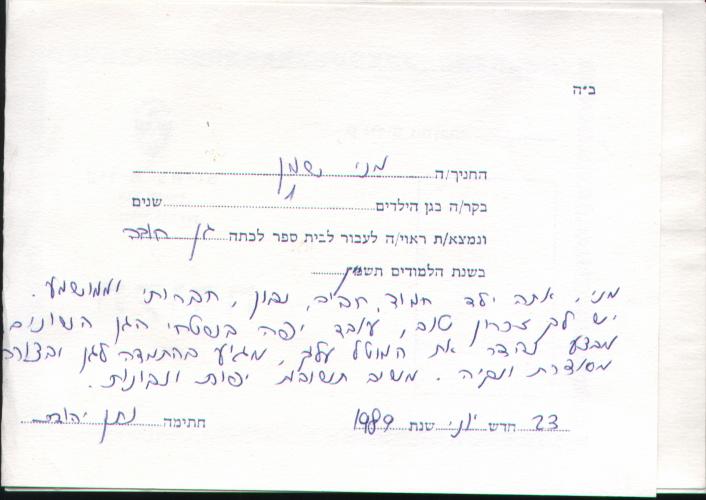 ב"ה
החניך/ה מני נשמן
בקר/ה בגן הילדים 1 שנים
ונמצא/ת ראוי/ה לעבור לבית ספר לכתה גן חובה
בשנת הלמודים תש
מני, אתה ילד חמוד, חביב, נבון, חברותי וממושמע.
יש לך זכרון טוב, עובד יפה בשטחי הגן השונים
מבצע את המוטל עליך, מגיע בהתמדה לגן ובצורה
מסודרת ונקיה. משיב תשובות יפות ונבונות.
23 חדש יוני שנת 1989 חתימה נתן